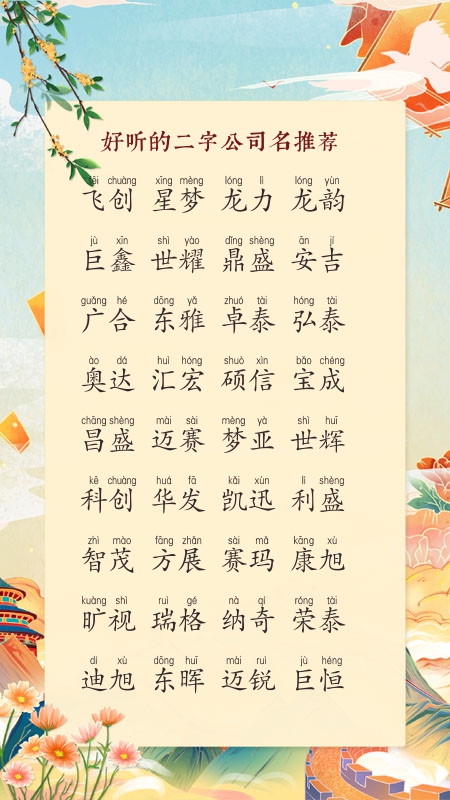 好听的二字公司名推荐
fēi chuàng xīng mèng lóng lì lóng yùn
飞创 星梦 龙力 龙韵
jù xīn shì yào dǐng shèng ān jí
巨鑫 世耀 鼎盛 安吉
guǎng hé dōng yǎ zhuó tài hóng tài
广合 东雅 卓泰 弘泰
ào dá huì hóng shuò xìn bǎo chéng
奥达 汇宏 硕信 宝成
chāng shèng mài sài mèng yà shì huī
昌盛 迈赛 梦亚 世辉
kē chuàng huá fā kǎi xùn lì shèng
科创 华发 凯迅 利盛
zhì mào fāng zhǎn sài mǎ kāng xù
智茂 方展 赛玛 康旭
kuàng shì ruì gé nà qí róng tài
旷视 瑞格 纳奇 荣泰
dí xù dōng huī mài ruì jù héng
迪旭 东晖 迈锐 巨恒